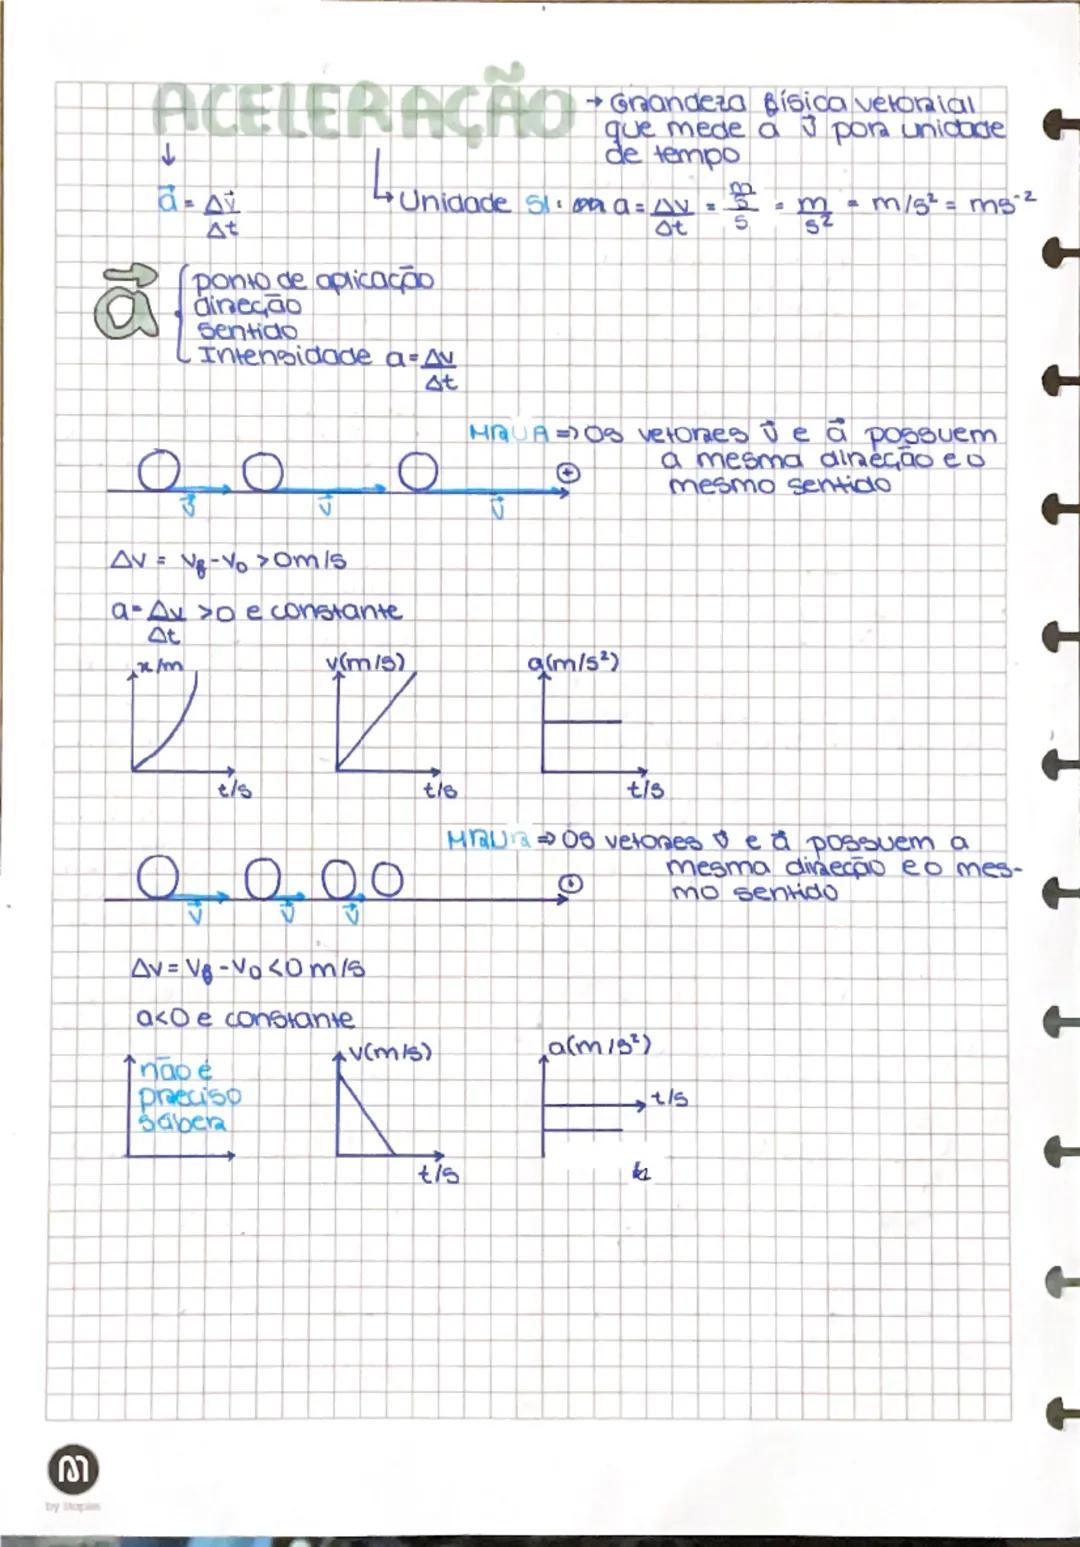 ACELERAÇÃO
→ Grandeza física vetorial
que mede a v⃗ por unidade
de tempo
↓
a⃗ = Δv⃗/Δt
↳ Unidade SI: a = Δv/Δt = (m/s)/s = m/s² = m/s² = ms⁻²
a⃗ { ponto de aplicação
direção
sentido
Intensidade a = Δv/Δt
MRUA => Os vetores v⃗ e a⃗ possuem
a mesma direção e o
mesmo sentido
v⃗ v⃗ v⃗ +
Δv = vf - v0 > 0m/s
a = Δv/Δt > 0 e constante
x/m v(m/s) a(m/s²)
t/s t/s t/s
MRUR => Os vetores v⃗ e a⃗ possuem a
mesma direção e o mes-
mo sentido
v⃗ v⃗ v⃗ +
Δv = vf - v0 < 0 m/s
a<0 e constante
não é
preciso
saber
v(m/s) a(m/s²)
t/s
t/s
by staples